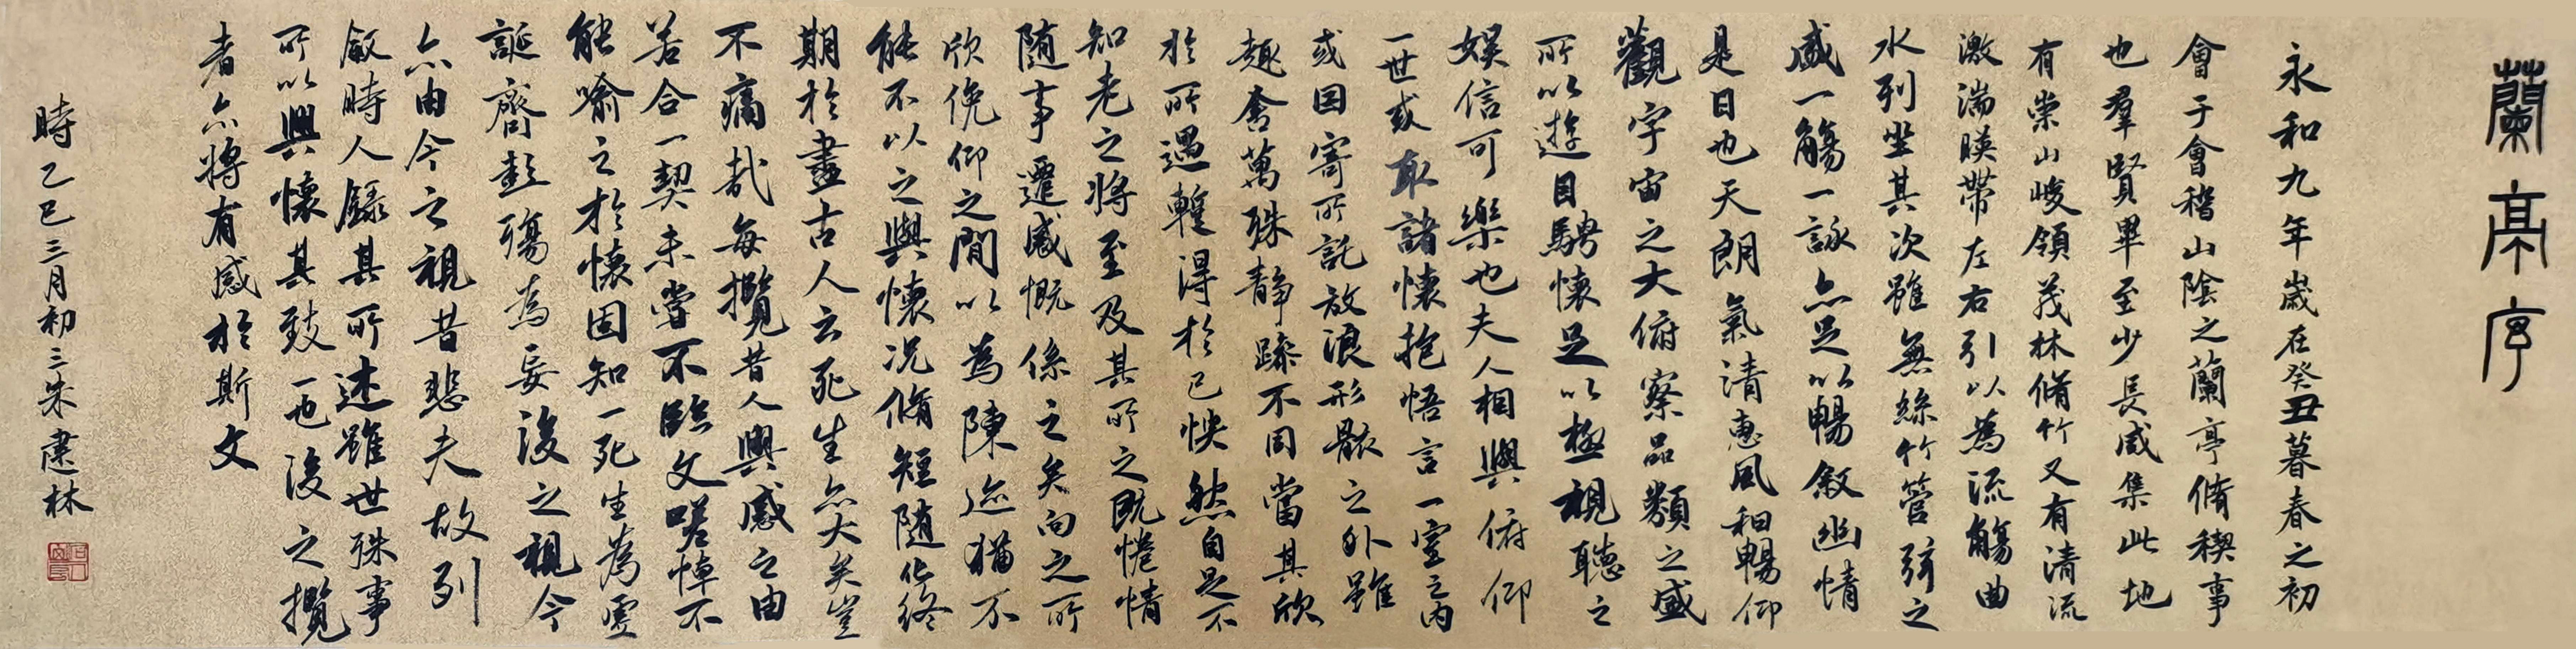 蘭亭序
永和九年歲在癸丑暮春之初
會于會稽山陰之蘭亭脩稧事
也羣賢畢至少長咸集此地
有崇山峻領茂林脩竹又有清流
激湍暎帶左右引以為流觴曲
水列坐其次雖無絲竹管弦之
盛一觴一詠亦足以暢敘幽情
是日也天朗氣清惠風和暢仰
觀宇宙之大俯察品類之盛
所以遊目騁懷足以極視聽之
娛信可樂也夫人相與俯仰
一世或取諸懷抱悟言一室之內
或因寄所託放浪形骸之外雖
趣舍萬殊靜躁不同當其欣
於所遇蹔得於己怏然自足不
知老之將至及其所之既惓情
隨事遷感慨係之矣向之所
欣俛仰之閒以為陳迹猶不
能不以之興懷況脩短隨化終
期於盡古人云死生亦大矣豈
不痛哉每攬昔人興感之由
若合一契未嘗不臨文嗟悼不
能喻之於懷固知一死生為虛
誕齊彭殤為妄後之視今
亦由今之視昔悲夫故列
敘時人錄其所述雖世殊事
所以興懷其致一也後之攬
者亦將有感於斯文
時乙巳三月初三朱建林